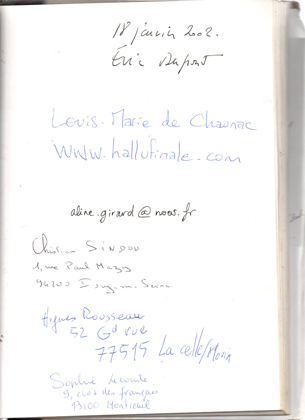 18 janvier 2002.
Éric Dupont
Louis-Marie de Chaunac
www.hallufinale.com
aline.girard@noos.fr
Christian SINDOU
1, rue Paul
94200 Ivry-sur-Seine
Hugues Rousseau
52 Gd rue
77515 La celle/Morin
Sophie Lecomte
9, clos des français
93100 Montreuil